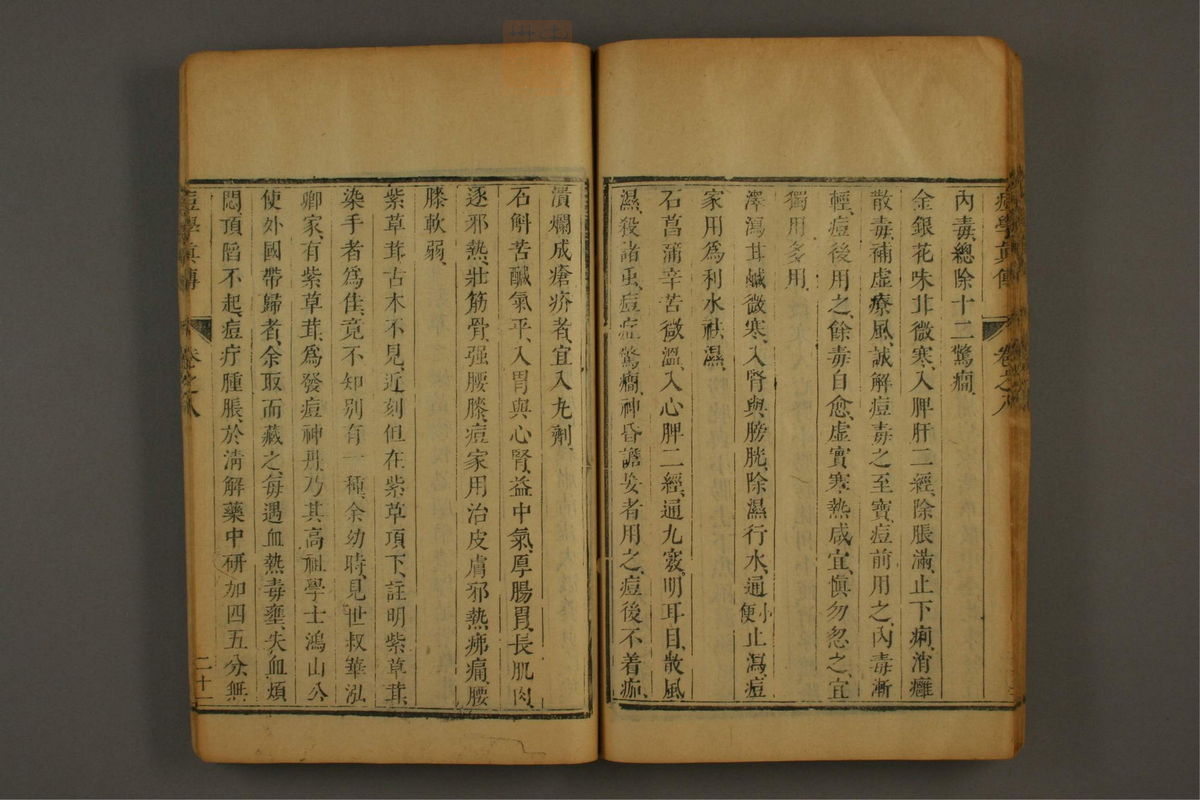 痘學真傳 卷之八
內毒總除十二驚癎、
金銀花味甘微寒、入脾肝二經、除脹滿、止下痢、消癰
散毒、補虛療風、誠解痘毒之至寶、痘前用之、內毒漸
輕、痘後用之、餘毒自愈、虛實寒熱咸宜、愼勿忽之、宜
獨用多用、
澤瀉甘鹹微寒、入腎與膀胱、除濕行水、通小便、止瀉、痘
家用爲利水祛濕、
石菖蒲辛苦微溫、入心脾二經、通九竅、明耳目、散風
濕、殺諸虫、痘症驚癎、神昏譫妄者用之、痘後不着痂、
潰爛成瘡疥者、宜入丸劑、
石斛苦鹹氣平、入胃與心腎、益中氣、厚腸胃、長肌肉、
逐邪熱、壯筋骨、强腰膝、痘家用治皮膚邪熱、痱痛、腰
膝軟弱、
紫草茸古本不見、近刻但在紫草項下、註明紫草茸、
染手者爲佳、竟不知別有一種、余幼時、見世叔華泓
卿家、有紫草茸、爲發痘神丹、乃其高祖學士鴻山公
使外國帶歸者、余取而藏之、每遇血熱毒壅、失血煩
悶、頂陷不起、痘疔腫脹、於淸解藥中、研加四五分、無
痘學真傳 卷之八 二十一